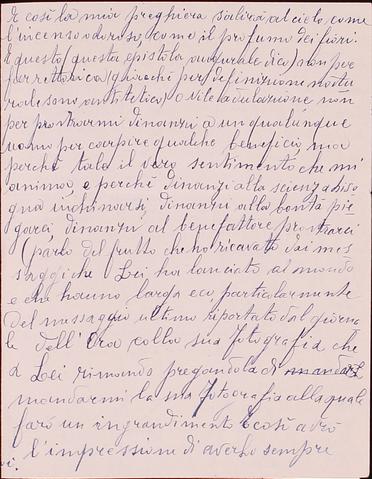 E così la mia preghiera salirà al cielo come
l'incenso odoroso, come il profumo dei fiori.
E questo (questa epistola augurale dico) non per
far rettorica (giacchè per definizione natu
rale sono antitetica) o vile adulazione non
per prostrarmi dinanzi a un qualunque
uomo per carpire qualche beneficio, ma
perchè tale il vero sentimento che mi
anima, e perchè dinanzi alla scienza biso
gna inchinarsi, dinanzi alla bontà pie
garci dinanzi al benefattore prostrarci
(parlo del frutto che ho ricavato dai mes
saggi che Lei ha lanciato al mondo
e che hanno larga eco particolarmente
del messaggio ultimo riportato dal giorna
le dell'Ora colla sua fotografia che
a Lei rimando pregandola di
mandarmi la sua fotografia alla quale
farò un ingrandimento e così avrò
l'impressione di averlo sempre
vi.